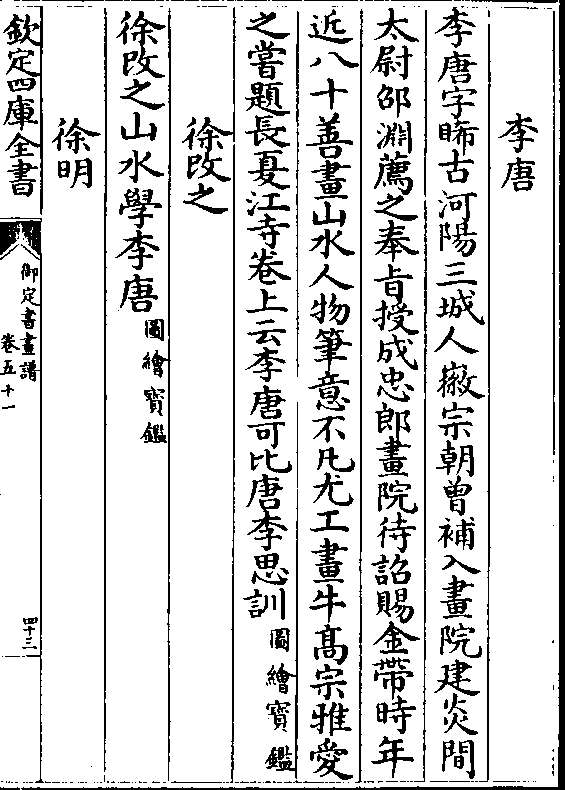 李唐
李唐字晞古河陽三城人徽宗朝曾補入畫院建炎間
太尉邵淵薦之奉旨授成忠郎畫院待詔賜金帶時年
近八十善畫山水人物筆意不凡尤工畫牛髙宗雅愛
之嘗題長夏江寺卷上云李唐可比唐李思訓圖繪寶鑑
徐改之
徐改之山水學李唐圖繪寶鑑
徐明
欽定四庫全書
御定書畫譜
卷五十一
四十三